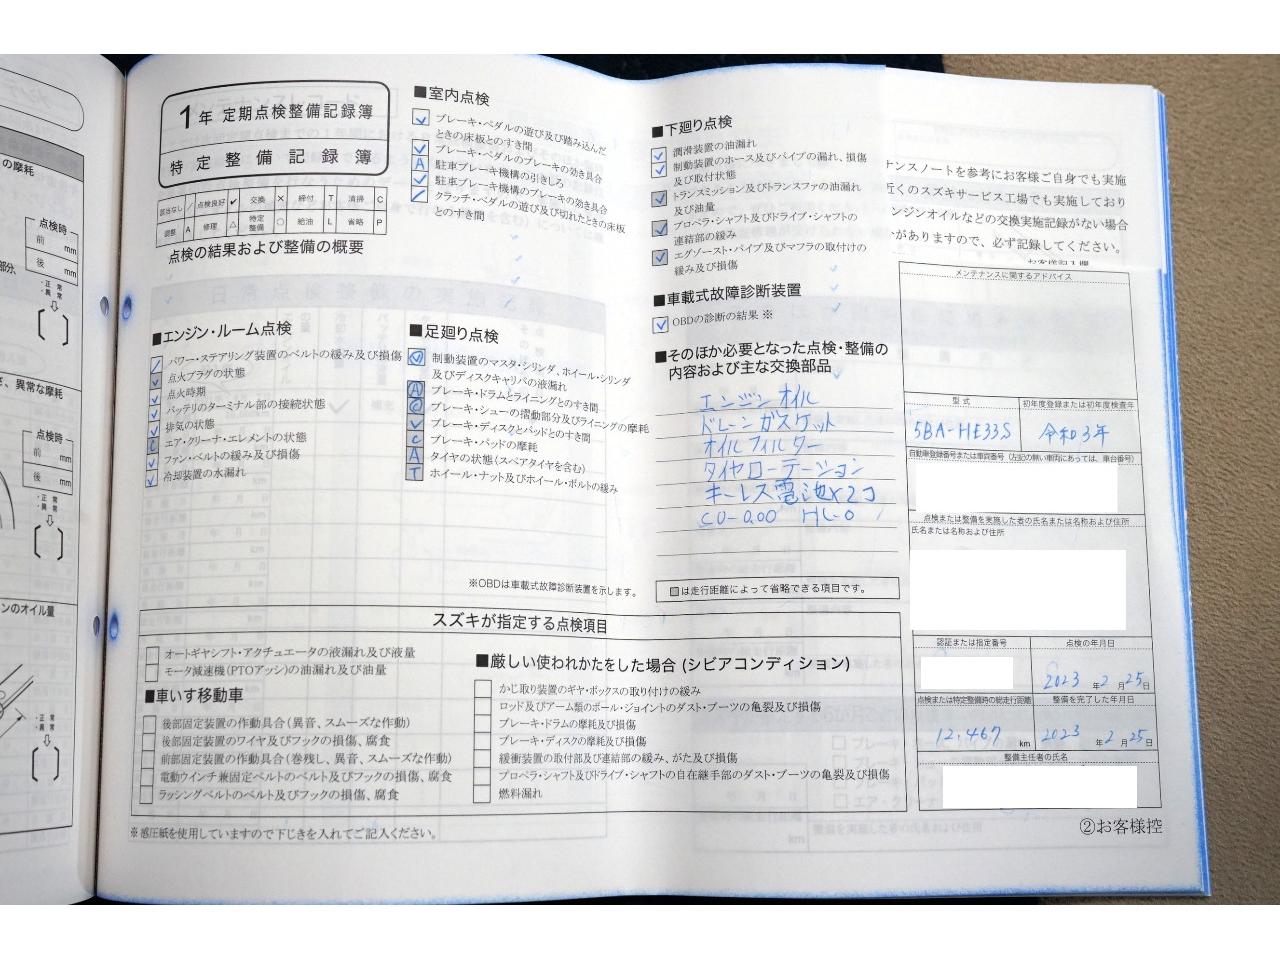 1年 定期点検整備記録簿
特定整備記録簿
該当なし / 点検良好 ✓ 交換 × 締付 T 清掃 C
調整 A 修理 △ 特定整備 ○ 給油 L 省略 P
点検の結果および整備の概要
■エンジン・ルーム点検
パワー・ステアリング装置のベルトの緩み及び損傷
点火プラグの状態
点火時期
バッテリのターミナル部の接続状態
排気の状態
エア・クリーナ・エレメントの状態
ファン・ベルトの緩み及び損傷
冷却装置の水漏れ
■室内点検
ブレーキ・ペダルの遊び及び踏み込んだ
ときの床板とのすき間
ブレーキ・ペダルのブレーキの効き具合
A 駐車ブレーキ機構の引きしろ
駐車ブレーキ機構のブレーキの効き具合
クラッチ・ペダルの遊び及び切れたときの床板
とのすき間
■足廻り点検
制動装置のマスタ・シリンダ、ホイール・シリンダ
及びディスクキャリパの液漏れ
A ブレーキ・ドラムとライニングとのすき間
C ブレーキ・シューの摺動部分及びライニングの摩耗
ブレーキ・ディスクとパッドとのすき間
C ブレーキ・パッドの摩耗
A タイヤの状態(スペアタイヤを含む)
T ホイール・ナット及びホイール・ボルトの緩み
※OBDは車載式故障診断装置を示します。
■下廻り点検
潤滑装置の油漏れ
制動装置のホース及びパイプの漏れ、損傷
及び取付状態
トランスミッション及びトランスファの油漏れ
及び油量
プロペラ・シャフト及びドライブ・シャフトの
連結部の緩み
エグゾースト・パイプ及びマフラの取付けの
緩み及び損傷
■車載式故障診断装置
OBDの診断の結果 ※
■そのほか必要となった点検・整備の
内容および主な交換部品
エンジンオイル
ドレーンガスケット
オイルフィルター
タイヤローテーション
キーレス電池×2コ
CO-0.00 HC-0
は走行距離によって省略できる項目です。
スズキが指定する点検項目
オートギヤシフト・アクチュエータの液漏れ及び液量
モータ減速機(PTOアッシ)の油漏れ及び油量
■車いす移動車
後部固定装置の作動具合(異音、スムーズな作動)
後部固定装置のワイヤ及びフックの損傷、腐食
前部固定装置の作動具合(巻残し、異音、スムーズな作動)
電動ウインチ兼固定ベルトのベルト及びフックの損傷、腐食
ラッシングベルトのベルト及びフックの損傷、腐食
■厳しい使われかたをした場合(シビアコンディション)
かじ取り装置のギヤ・ボックスの取り付けの緩み
ロッド及びアーム類のボール・ジョイントのダスト・ブーツの亀裂及び損傷
ブレーキ・ドラムの摩耗及び損傷
ブレーキ・ディスクの摩耗及び損傷
緩衝装置の取付部及び連結部の緩み、がた及び損傷
プロペラ・シャフト及びドライブ・シャフトの自在継手部のダスト・ブーツの亀裂及び損傷
燃料漏れ
※感圧紙を使用していますので下じきを入れてご記入ください。
ナンスノートを参考にお客様ご自身でも実施
近くのスズキサービス工場でも実施しており
ンジンオイルなどの交換実施記録がない場合
がありますので、必ず記録してください。
メンテナンスに関するアドバイス
型式 初年度登録または初年度検査年
5BA-HE33S 令和3年
自動車登録番号または車両番号(左記の無い車両にあっては、車台番号)
点検または整備を実施した者の氏名または名称および住所
氏名または名称および住所
認証または指定番号 点検の年月日
2023年2月25日
点検または特定整備時の総走行距離 整備を完了した年月日
12,467 km 2023年2月25日
整備主任者の氏名
②お客様控
の摩耗
点検時
前 mm
後 mm
・正常
・異常
き、異常な摩耗
点検時
前 mm
後 mm
・正常
・異常
ンのオイル量
・正常
・異常